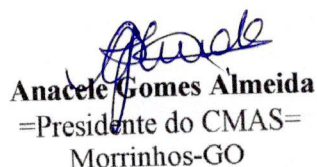 Anacele Gomes Almeida
=Presidente do CMAS=
Morrinhos-GO